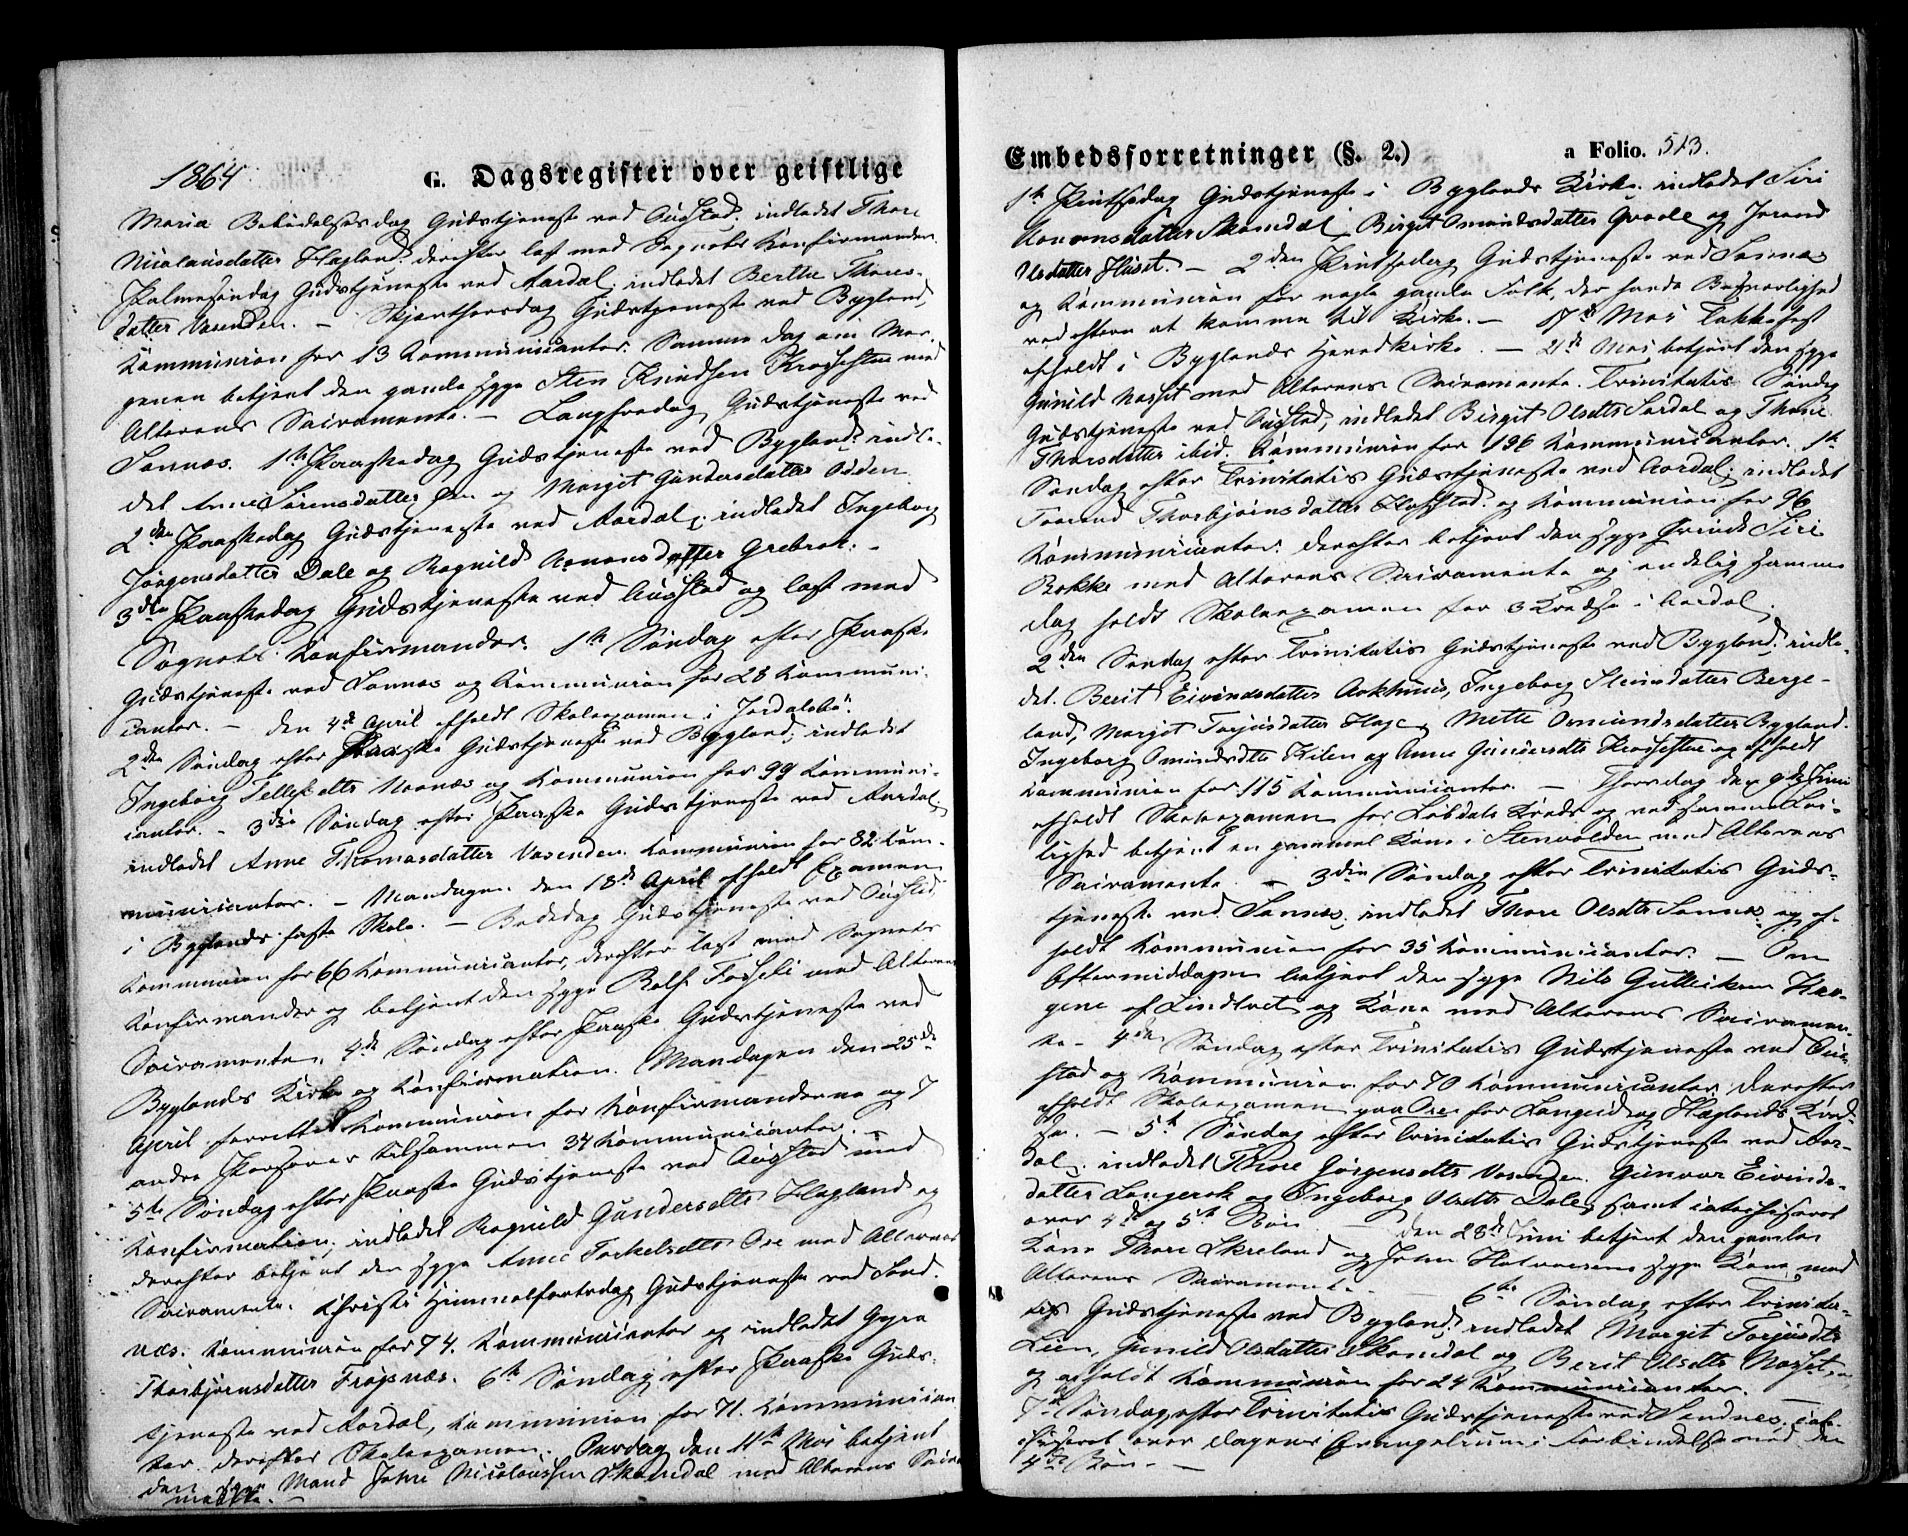 1864
G. Dagsregister over geistlige
Maria Bebudelsesdag Gudstjeneste ved Austad. indledet Thore
Nicolausdatter Hagland. derefter læst med Sognets Konfirmander.
Palmesøndag Gudstjeneste ved Aardal; indledet Berthe Thores-
datter Vasenden. — Skjærthorsdag Gudstjeneste ved Bygland,
Kommunion for 13 Kommunicanter. Samme dag om Mor-
genen betjent den gamle syge Sten Knudsen Kroshestue med
Alterens Sacramente. — Langfredag Gudstjeneste ved
Sannes. 1ste Paaskedag Gudstjeneste ved Bygland. indle-
det Anne Sørensdatter og Marget Gundersdatter Odden.
2den Paaskedag Gudstjeneste ved Aardal; indledet Ingeborg
Jørgensdatter Dale og Ragnild Aanonsdatter Grebrok. —
3die Paaskedag Gudstjeneste ved Austad og læst med
Sognets Konfirmander. 1ste Søndag efter Paaske
Gudstjeneste ved Sannes og Kommunion for 28 Kommuni-
canter. — den 4de April afholdt Skoleexamen i Jordalsbø.
2den Søndag efter Paaske Gudstjeneste ved Bygland; indledet
Ingeborg Tellefsdtr Noenæs og Kommunion for 99 Kommuni-
canter. — 3die Søndag efter Paaske Gudstjeneste ved Aardal,
indledet Anne Thomasdatter Vasenden. Kommunion for 82 Kom-
municanter. — Mandagen den 18de April afholdt Examen
i Byglands faste Skole. — Bededag Gudstjeneste ved Austad
Kommunion for 66 Kommunicanter, derefter læst med Sognets
Konfirmander og betjent den syge Rolf Foseli med Alterens
Sacramente. 4de Søndag efter Paaske Gudstjeneste ved
Byglands Kirke og Konfirmation. Mandagen den 25de
April forrettet Kommunion for Konfirmanderne og 7
andre Personer tilsammen 34 Kommunicanter. —
5te Søndag efter Paaske Gudstjeneste ved Austad med
Konfirmation; indledet Ragnild Gundersdtr Hagland og
derefter betjent den syge Anne Torkelsdtr Ose med Alterens
Sacramente. Christi Himmelfartsdag Gudstjeneste ved Sand-
næs. Kommunion for 74 Kommunicanter og indledet Gyro
Thorbjørnsdatter Frøysnæs. 6te Søndag efter Paaske Guds-
tjeneste ved Aardal, Kommunion for 71 Kommunican-
ter. derefter Skoleexamen. Onsdag den 11te Mai betjent
den syge Mand John Nicolaussen Skomedal med Alterens Sacra-
mente. —
Embedsforretninger (§. 2.)
a Folio. 513.
1ste Pintsedag Gudstjeneste i Byglands Kirke. indledet Siri
Aanonsdatter Skomdal, Birgit Omundsdatter Qvaale og Jorand
Olsdatter Huset. — 2den Pintsedag Gudstjeneste ved Sannes
og Kommunion for nogle gamle Folk, der havde Besværlighed
ved oftere at komme til Kirke. — 17de Mai Takkefest
afholdt i Byglands Hovedkirke. — 21de Mai betjent den syge
Gunild Nasset med Alterens Sacramente. Trinitatis Søndag
Gudstjeneste ved Austad, indledet Birgit Olsdtr Sordal og Thore
Thorsdatter ibid. Kommunion for 196 Kommunicanter. 1ste
Søndag efter Trinitatis Gudstjeneste ved Aardal; indledet
Thorbjørnsdatter Flaxstad og Kommunion for 96
Kommunicanter. derefter betjent den syge Qvinde Siri
Bakke med Alterens Sacramente og endelig samme
dag holdt Skoleexamen for 3 Kredse i Aardal.
2den Søndag efter Trinitatis Gudstjeneste ved Bygland. indle-
det Berit Eivindsdatter Aakhuus, Ingeborg Steinsdatter Berge-
land, Margit Torjusdatter Hage, Mette Osmundsdatter Bygland.
Ingeborg Omundsdtr Kilen og Anne Gundersdtr Kroshestue og afholdt
Kommunion for 115 Kommunicanter. — Thorsdag den 9de Juni
afholdt Skoleexamen for Løbdals Kreds og ved samme Lei-
lighed betjent en gammel Kone i Stenvolden med Alterens
Sacramente. — 3die Søndag efter Trinitatis Guds-
tjeneste ved Sannes. indledet Thore Olsdtr Sannes og af-
holdt Kommunion for 35 Kommunicanter. — Om
Eftermiddagen betjent den syge Nils Gulleiksen Hau-
gene af Lindtvet og Kone med Alterens Sacramen-
te — 4de Søndag efter Trinitatis Gudstjeneste ved Au-
stad og Kommunion for 70 Kommunicanter, derefter
afholdt Skoleexamen paa Ose for Langeid og Haglands Kred-
se. — 5te Søndag efter Trinitatis Gudstjeneste ved Aar-
dal; indledet Thore Jørgensdtr Vasenden, Gunvor Eivinds-
datter Langerok og Ingeborg Olsdtr Dale, samt catechiseret
over 4de og 5te Bøn. — den 28de Juni betjent den gamle
Kone Thore Skreland og John syge Kone med
Alterens Sacrament. — 6te Søndag efter Trinita-
tis Gudstjeneste ved Bygland. indledet Margit Torjusdtr
Lien, Gunild Olsdatter Skomdal og Berit Olsdtr Nasset,
og afholdt Kommunion for 24 Kommunicanter. —
7de Søndag efter Trinitatis Gudstjeneste ved Sandnes; cate-
chiseret over dagens Evangelium i Forbindelse med den
4de Bøn. —